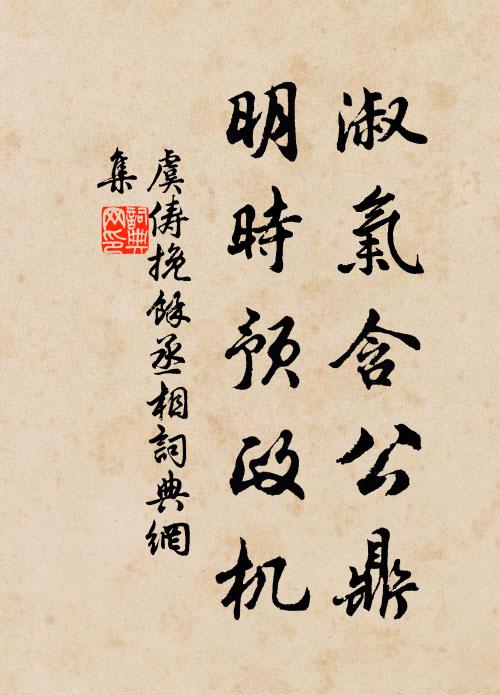 淑氣含公鼎
明時預政机
虞儔挽餘丞相詞典網
集
詞典網印